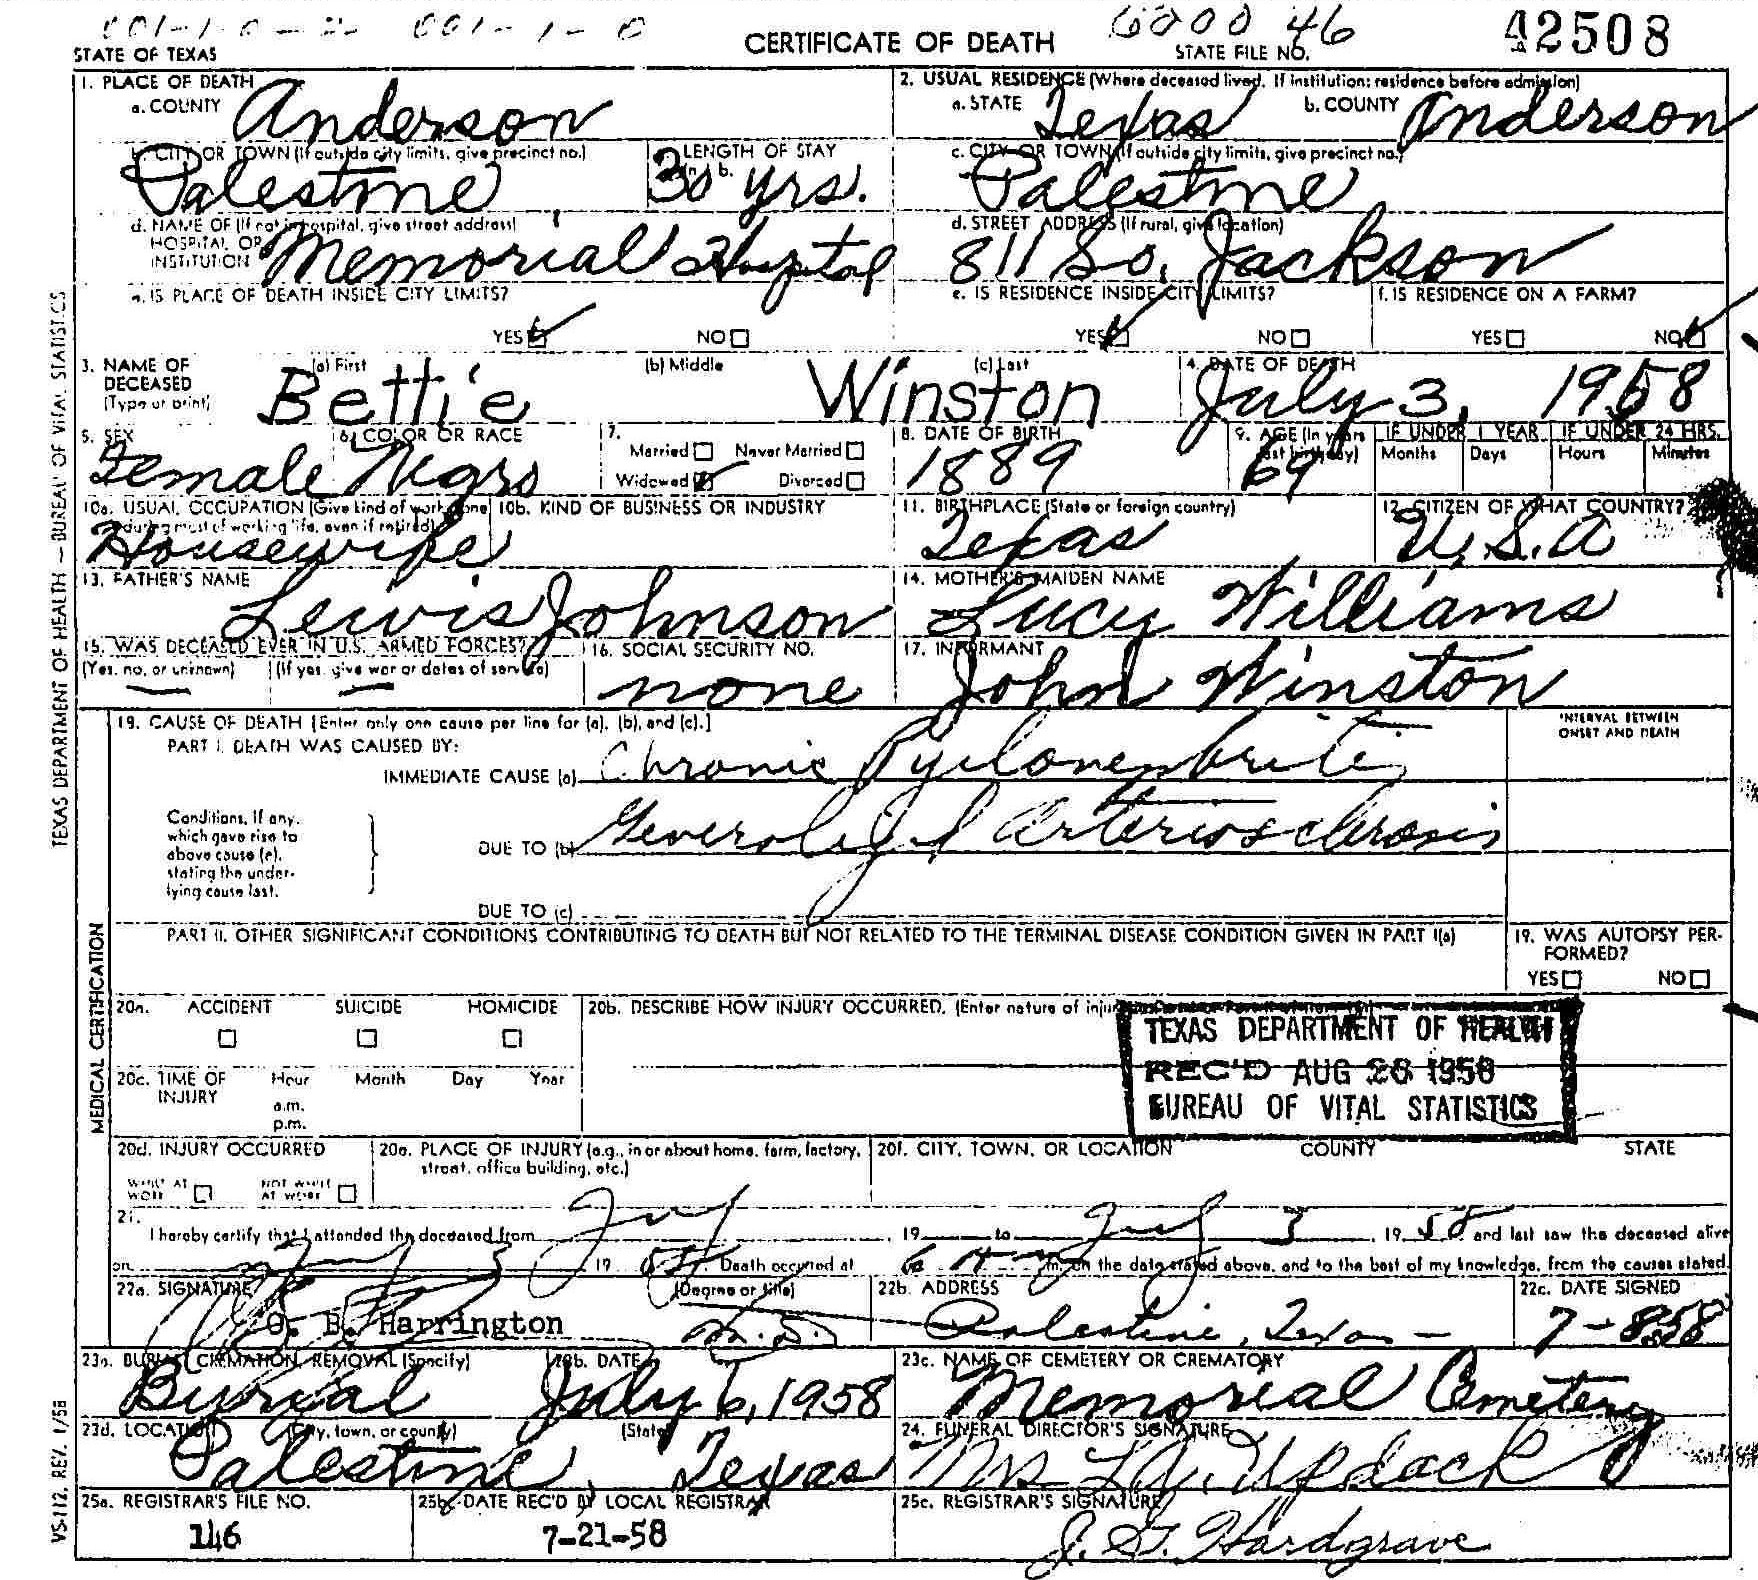 001-1-0 001-1-0 6000 46 42508
STATE OF TEXAS CERTIFICATE OF DEATH STATE FILE NO.
1. PLACE OF DEATH
a. COUNTY Anderson
2. USUAL RESIDENCE (Where deceased lived. If institution: residence before admission)
a. STATE Texas b. COUNTY Anderson
b. CITY OR TOWN (If outside city limits, give precinct no.) Palestine
LENGTH OF STAY in b. 30 yrs.
c. CITY OR TOWN (If outside city limits, give precinct no.) Palestine
d. NAME OF (If not in hospital, give street address) HOSPITAL OR INSTITUTION Memorial Hospital
d. STREET ADDRESS (If rural, give location) 811 So. Jackson
e. IS PLACE OF DEATH INSIDE CITY LIMITS?
YES NO
e. IS RESIDENCE INSIDE CITY LIMITS?
YES NO
f. IS RESIDENCE ON A FARM?
YES NO
3. NAME OF DECEASED (Type or print)
(a) First Bettie (b) Middle (c) Last Winston
4. DATE OF DEATH July 3, 1958
5. SEX Female
6. COLOR OR RACE Negro
7. Married Never Married
Widowed Divorced
8. DATE OF BIRTH 1889
9. AGE (In years last birthday) 69
IF UNDER 1 YEAR Months Days
IF UNDER 24 HRS. Hours Minutes
10a. USUAL OCCUPATION (Give kind of work done during most of working life, even if retired) Housewife
10b. KIND OF BUSINESS OR INDUSTRY
11. BIRTHPLACE (State or foreign country) Texas
12. CITIZEN OF WHAT COUNTRY? U.S.A
13. FATHER'S NAME Lewis Johnson
14. MOTHER'S MAIDEN NAME Lucy Williams
15. WAS DECEASED EVER IN U.S. ARMED FORCES?
(Yes, no, or unknown) — (If yes, give war or dates of service) —
16. SOCIAL SECURITY NO. none
17. INFORMANT John Winston
19. CAUSE OF DEATH [Enter only one cause per line for (a), (b), and (c).]
INTERVAL BETWEEN ONSET AND DEATH
PART I. DEATH WAS CAUSED BY:
IMMEDIATE CAUSE (a) Chronic Pyelonephritis
Conditions, if any, which gave rise to above cause (a), stating the underlying cause last.
DUE TO (b) Generalized Arteriosclerosis
DUE TO (c)
PART II. OTHER SIGNIFICANT CONDITIONS CONTRIBUTING TO DEATH BUT NOT RELATED TO THE TERMINAL DISEASE CONDITION GIVEN IN PART I(a)
19. WAS AUTOPSY PERFORMED?
YES NO
20a. ACCIDENT SUICIDE HOMICIDE
20b. DESCRIBE HOW INJURY OCCURRED. (Enter nature of injury
TEXAS DEPARTMENT OF HEALTH
REC'D AUG 26 1958
BUREAU OF VITAL STATISTICS
20c. TIME OF INJURY Hour Month Day Year
a.m.
p.m.
20d. INJURY OCCURRED
WHILE AT WORK NOT WHILE AT WORK
20e. PLACE OF INJURY (e.g., in or about home, farm, factory, street, office building, etc.)
20f. CITY, TOWN, OR LOCATION COUNTY STATE
21.
I hereby certify that I attended the deceased from July 19 to July 3, 1958 and last saw the deceased alive
on July 3 1958. Death occurred at 6 m. on the date stated above, and to the best of my knowledge, from the causes stated.
22a. SIGNATURE (Degree or title)
O. B. Harrington M.D.
22b. ADDRESS Palestine, Texas
22c. DATE SIGNED 7-8-58
23a. BURIAL, CREMATION, REMOVAL (Specify) Burial
23b. DATE July 6, 1958
23c. NAME OF CEMETERY OR CREMATORY Memorial Cemetery
23d. LOCATION (City, town, or county) (State)
Palestine, Texas
24. FUNERAL DIRECTOR'S SIGNATURE Mrs
25a. REGISTRAR'S FILE NO. 146
25b. DATE REC'D BY LOCAL REGISTRAR 7-21-58
25c. REGISTRAR'S SIGNATURE J. G. Hardgrave
TEXAS DEPARTMENT OF HEALTH — BUREAU OF VITAL STATISTICS
MEDICAL CERTIFICATION
VS-112, REV. 1/58